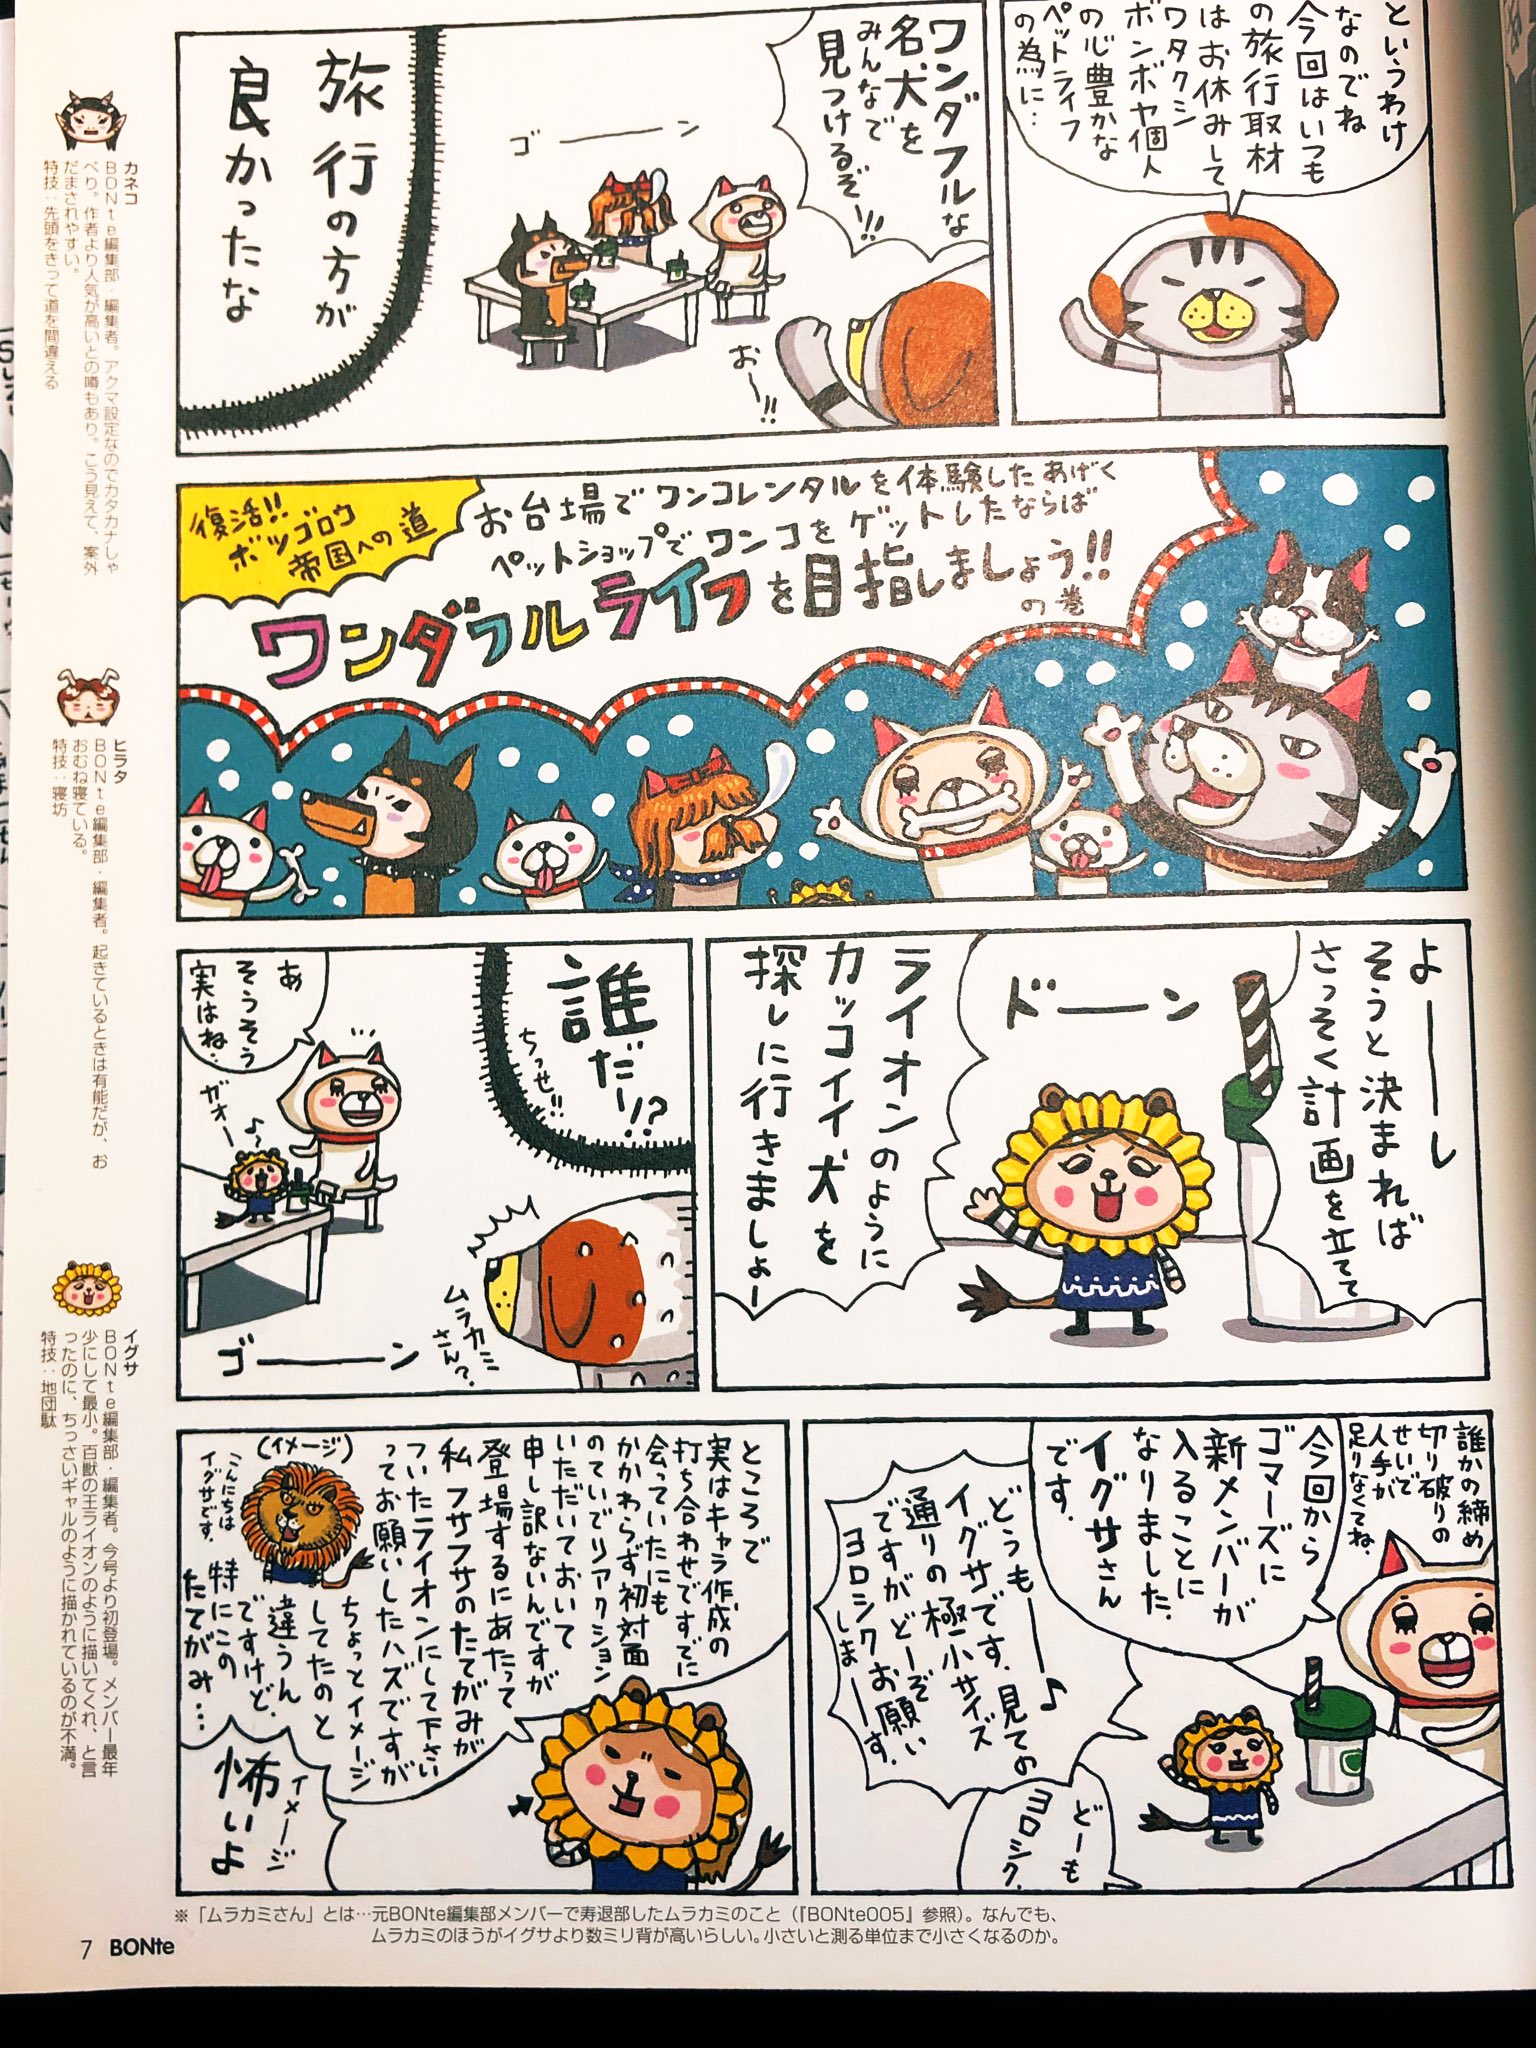 というわけ
なのでね
今回はいつも
の旅行取材
はお休みして
ワタクシ
ボンボヤ個人
の心豊かな
ペットライフ
の為に…
ワンダフルな
名犬を
みんなで
見つけるぞ!!
ゴーーーン
おー!!
旅行の方が
良かったな
復活!!
ボツゴロウ
帝国への道
お台場でワンコレンタルを体験したあげく
ペットショップでワンコをゲットしたならば
ワンダフルライフを目指しましょう!!
の巻
よーーーし
そうと決まれば
さっそく計画を立てて
ドーーン
ライオンのように
カッコイイ犬を
探しに行きましょー
誰だー!?
ちっせ!!
ムラカミ
さん?
あ
そうそう
実はね.
ガオー
♪〜
ゴーーーン
誰かの締め
切り破りの
せいで
人手が
足りなくてね.
今回から
ゴマーズに
新メンバーが
入ることに
なりました.
イグサさん
です.
どうもーー♪
イグサです.見ての
通りの極小サイズ
ですがどーぞ
ヨロシクお願い
しまーーーす.
どーも
ヨロシク.
ところで
実はキャラ作成の
打ち合わせですでに
会っていたにも
かかわらず初対面
のていでリアクション
いただいておいて
申し訳ないんですが
登場するにあたって
私フサフサのたてがみが
ついたライオンにして下さい
ってお願いしたハズですが
ちょっとイメージ
してたのと
違うん
ですけど.
特にこの
たてがみ…
(イメージ)
こんにちは
イグサです.
イメージ
怖いよ
カネコ
BONte編集部・編集者。アクマ設定なのでカタカナしゃ
べり。作者より人気が高いとの噂もあり。こう見えて、案外
だまされやすい。
特技：先頭をきって道を間違える
ヒラタ
BONte編集部・編集者。起きているときは有能だが、お
おむね寝ている。
特技：寝坊
イグサ
BONte編集部・編集者。今号より初登場。メンバー最年
少にして最小。百獣の王ライオンのように描いてくれ、と言
ったのに、ちっさいギャルのように描かれているのが不満。
特技：地団駄
※「ムラカミさん」とは…元BONte編集部メンバーで寿退部したムラカミのこと（『BONte005』参照）。なんでも、
ムラカミのほうがイグサより数ミリ背が高いらしい。小さいと測る単位まで小さくなるのか。
7 BONte